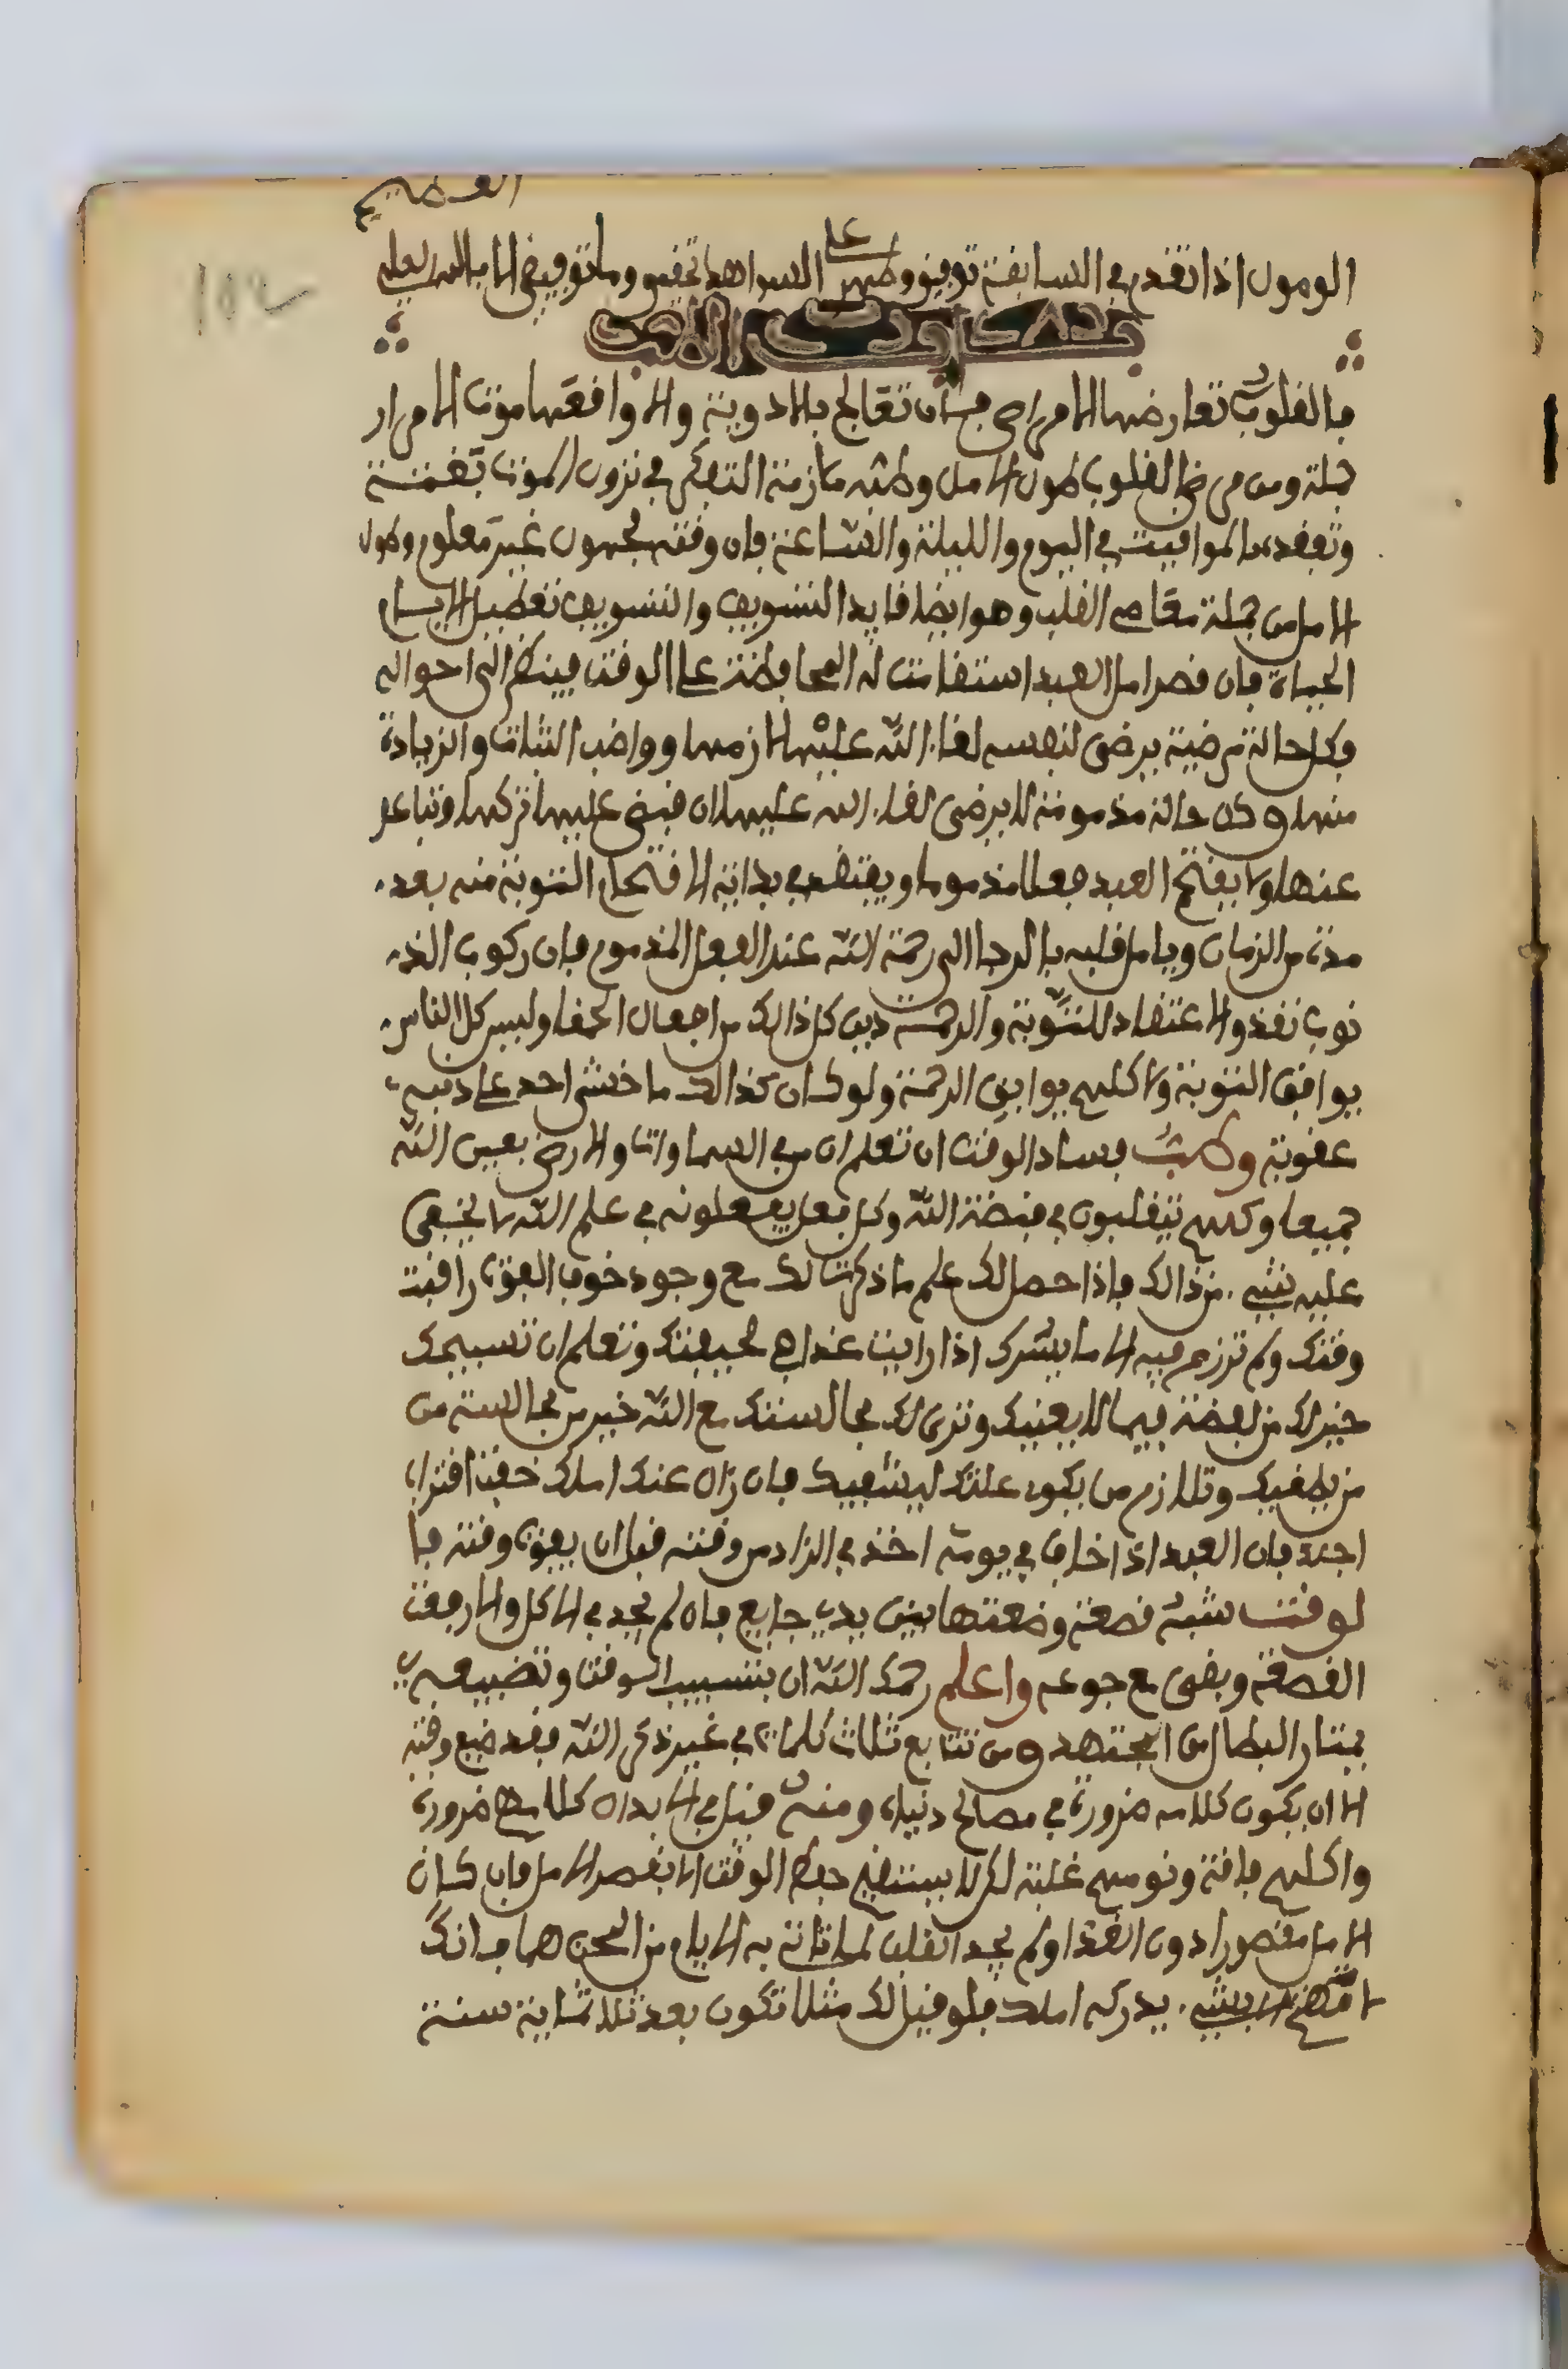 العظيم
الوصول اذا تقدم في السابقة توفيق وظهر على الشواهد تحقيق وما توفيقي الا بالله العلي
١٥٢
فالقلوب تعارضها الامراض فيمكن ان تعالج بالادوية والا وافقها موت الاسرار
جملة ومن مرض القلوب طول الامل وطبه ملازمة التفكر في نزول الموت بغتة
وتفقد المواقيت في اليوم والليلة والساعة فان وقته مجهول غير معلوم وطول
الامل من جملة معاصي القلب وهو ايضا قايد التسويف والتسويف تعطيل الايام
الحياة فان قصر امل العبد استقامت له المحافظة على الوقت فينظر الى احواله
وكل حالة مرضية يرضى لنفسه لقاء الله عليها لازمها وواضب الثبات والزيادة
منها وكل حالة مذمومة لا يرضى لقاء الله عليها ان قبض عليها تركها وتباعد
عنها ولا يفتح العبد فعلا مذموما ويعتقد في بدايته الافتتاح التوبة منه بعد
مدة من الزمان ويامل قلبه بالرجا الى رحمة الله عند الفعل المذموم فان ركوب الذ
نوب نقد والاعتقاد للتوبة والرحمة دين كل ذالك من افعال الحمقا وليس كل الناس
يوافق التوبة ولا كلهم يوافق الرحمة ولو كان كذالك ما خشي احد على دنبه
عقوبة وطب فساد الوقت ان تعلم ان من في السماوات والارض بعين الله
جميعا وكلهم يتقلبون في قبضة الله وكل فعل يفعلونه في علم الله لا يخفى
عليه شيء من ذالك فاذا حصل لك علم ما ذكرت لك مع وجود خوف الفوت راقبت
وقتك ولم تزرع فيه الا ما يسرك اذا رايت غدا في صحيفتك وتعلم ان تسبيحك
خير لك من لفظة فيما لا يعنيك وترى لك مجالستك مع الله خير من مجالسة من
من يطغيك وتلازم من يكون علتك ليشفيك فان زال عنك املك خفت اقتراب
اجلك فان العبد اذا خاف في يومه اخذ في الزاد من وقته قبل ان يفوت وقته فا
لوقت شبه قصعة وضعتها بين يدي جايع فان لم يجد في الاكل والا رفعت
القصعة وبقى مع جوعه واعلم رحمك الله ان بتسبيب الوقت وتضييعه
يمتاز البطال من المجتهد ومن تتابع ثلاث كلمات في غير ذكر الله فقد ضيع وقته
الا ان يكون كلامه ضرورة في مصالح دنياه ومنه قيل في الابدال كلامهم ضرورة
واكلهم فاقة ونومهم غلبة لكن لا يستقيم حفظ الوقت الا بقصر الامل فان كان
الامل مقصورا دون الغدا ولم يجد القلب لما تاتي به الايام من المحن هما فانك
لا تهتم الا بشيء يدركه املك فلو قيل لك مثلا تكون بعد ثلاثماية سنة